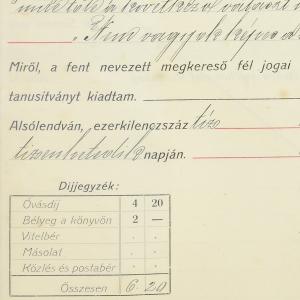 a következő választ
"Nem vagyok képes
Miről, a fent nevezett megkereső fél jogai
tanusitványt kiadtam.
Alsólendván, ezerkilenczszáz tizen
tizenhatodik napján.
Díjjegyzék:
Óvásdíj 4 20
Bélyeg a könyvön 2 —
Vitelbér . .
Másolat . .
Közlés és postabér . .
Összesen 6 20